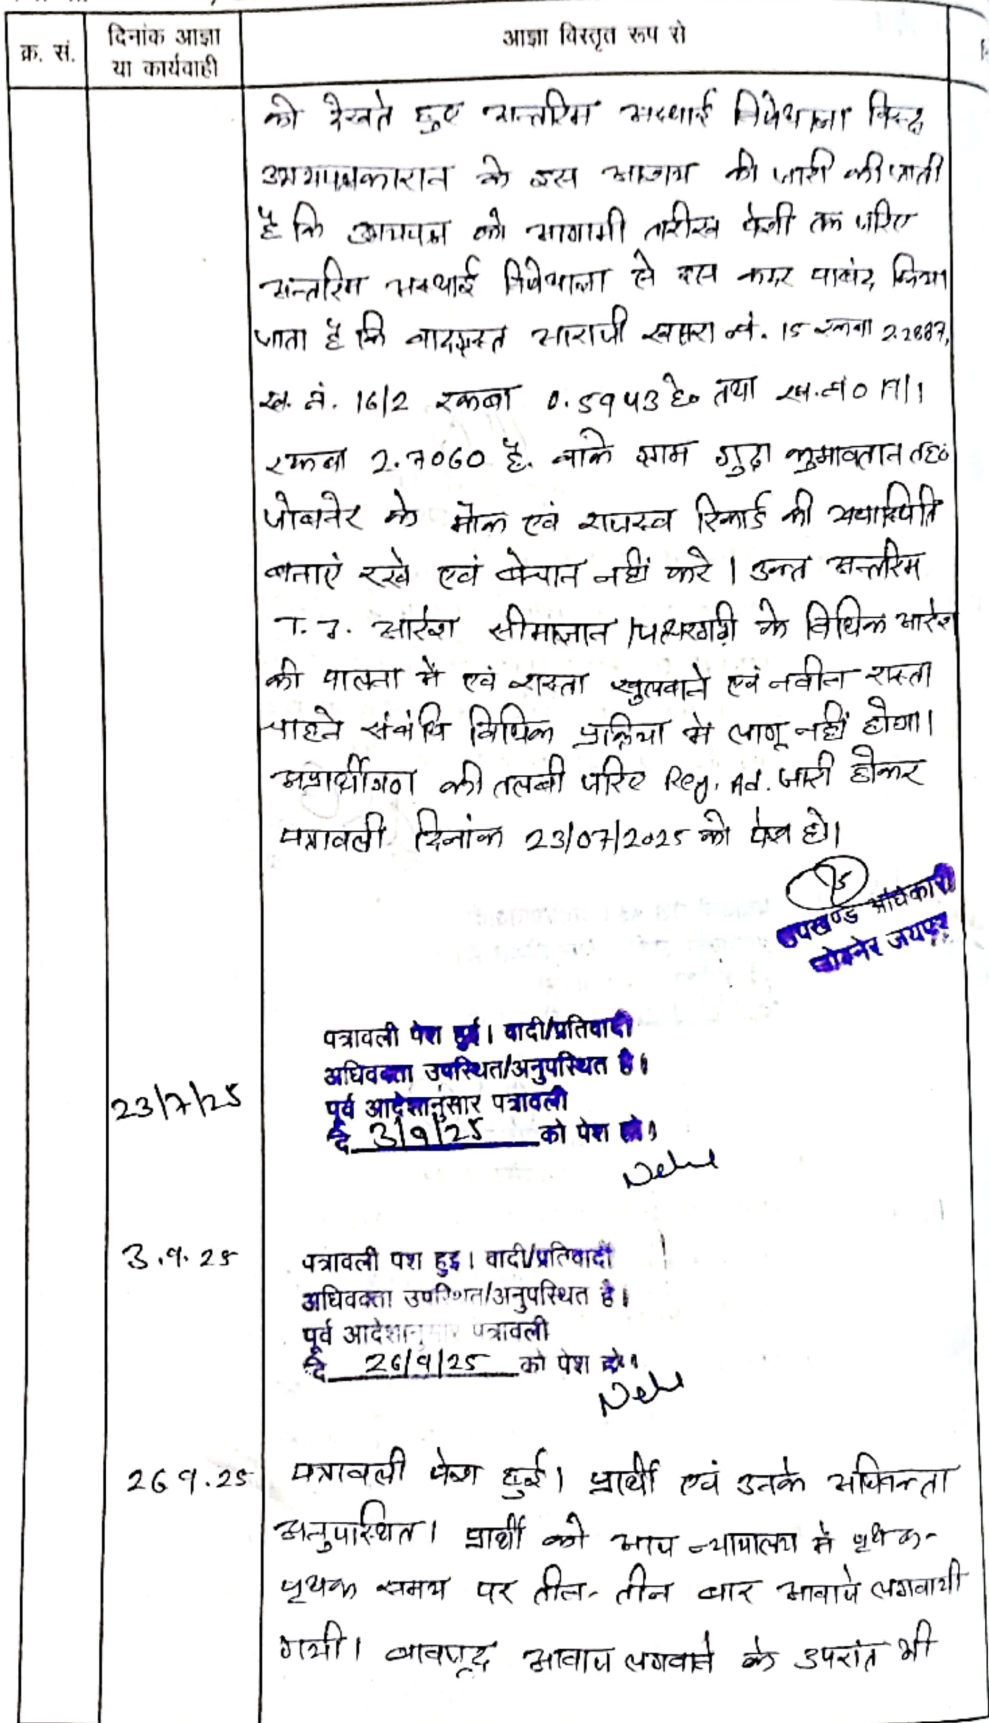 क्र. सं.
दिनांक आज्ञा
या कार्यवाही
आज्ञा विस्तृत रूप से
को देखते हुए अन्तरिम अस्थाई निषेधाज्ञा विरुद्ध
उभयपक्षकारान के इस आशय की जारी की जाती
है कि उभयपक्ष को आगामी तारीख पेशी तक जरिए
अन्तरिम अस्थाई निषेधाज्ञा से इस कदर पाबंद किया
जाता है कि वादग्रस्त आराजी खसरा नं. 15 रकबा 2.2887,
ख. नं. 16/2 रकबा 0.5943 हे० तथा ख.नं० 17/1
रकबा 2.7060 है. वाके ग्राम गुढ़ा कुमावतान तह०
जोबनेर के मौके एवं राजस्व रिकार्ड की यथास्थिति
बनाएं रखे एवं बेचान नहीं करे। उक्त अन्तरिम
T.I. आदेश सीमाज्ञान/पत्थरगढ़ी के विधिक आदेश
की पालना में एवं रास्ता खुलवाने एवं नवीन रास्ता
चाहने संबंधि विधिक प्रक्रिया में लागू नहीं होगा।
अप्रार्थीगण की तलबी जरिए Reg. Ad. जारी होकर
पत्रावली दिनांक 23/07/2025 को पेश हो।
उपखण्ड अधिकारी
जोबनेर जयपुर
पत्रावली पेश हुई। वादी/प्रतिवादी
अधिवक्ता उपस्थित/अनुपस्थित है।
23/7/25
पूर्व आदेशानुसार पत्रावली
दि 3/9/25 को पेश हो।
3.9.25
पत्रावली पेश हुई। वादी/प्रतिवादी
अधिवक्ता उपस्थित/अनुपस्थित है।
पूर्व आदेशानुसार पत्रावली
दि 26/9/25 को पेश हो।
26 9.25
पत्रावली पेश हुई। प्रार्थी एवं उनके अधिवक्ता
अनुपस्थित। प्रार्थी को आज न्यायालय में पृथक-
पृथक समय पर तीन-तीन बार आवाजे लगवायी
गयी। बावजूद आवाज लगवाने के उपरांत भी